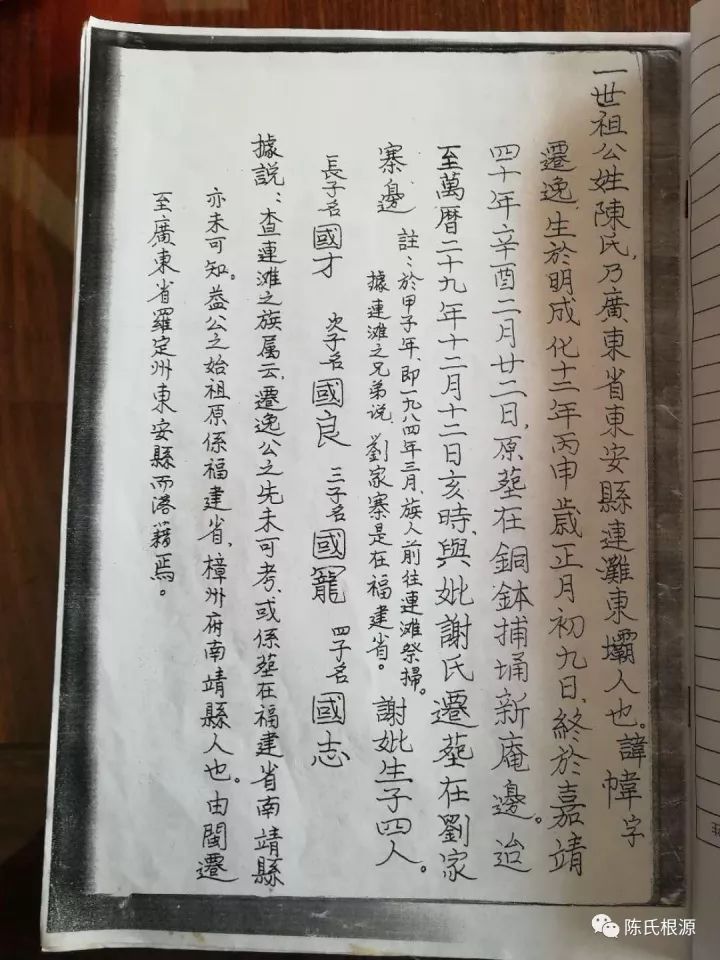 一世祖公姓陳氏,乃廣東省東安縣連灘東壩人也。諱幃字
遷逸,生於明成化十二年丙申歲正月初九日,終於嘉靖
四十年辛酉二月廿二日,原塟在銅鉢捕埇新庵邊。迨
至萬曆二十九年十二月十二日亥時,與妣謝氏遷塟在劉家
寨邊 註:於甲子年,即一九八四年三月,族人前往連滩祭掃。
據連滩之兄弟说 劉家寨是在福建省。 謝妣生子四人。
長子名國才 次子名國良 三子名國寵 四子名國志
據説:查連滩之族属云,遷逸公之先未可考,或係塟在福建省南靖縣
亦未可知。益公之始祖原係福建省,樟州府南靖縣人也。由閩遷
至廣東省羅定州東安縣而落籍焉。
陈氏根源